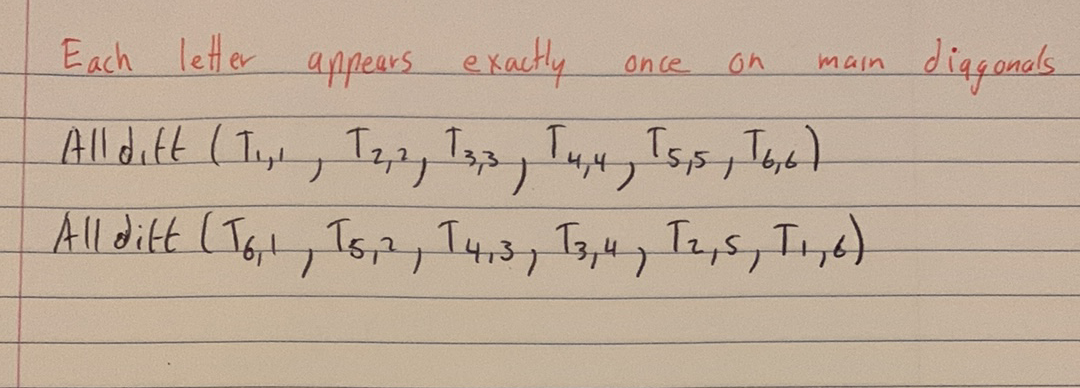 Each letter appears exactly once on main diagonals
Alldiff (T1,1 , T2,2, T3,3 , T4,4 , T5,5 , T6,6)
Alldiff (T6,1 , T5,2 , T4,3 , T3,4 , T2,5 , T1,6)